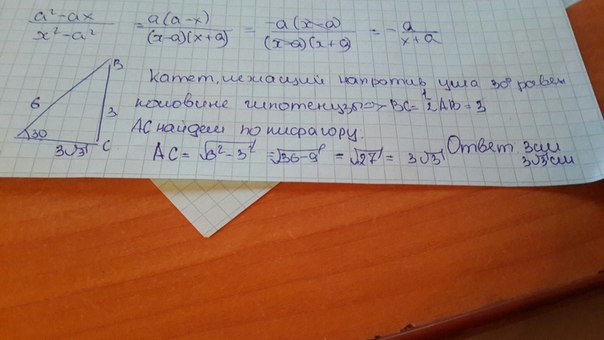 a² - ax / x² - a² = a(a-x) / (x-a)(x+a) = -a(x-a) / (x-a)(x+a) = - a / x+a
B
6
3
30
C
3√3
Катет, лежащий напротив угла 30° равен
половине гипотенузы => BC = 1/2 AB = 3
AC найдем по пифагору:
AC = √6² - 3² = √36-9 = √27 = 3√3
Ответ 3см
3√3см